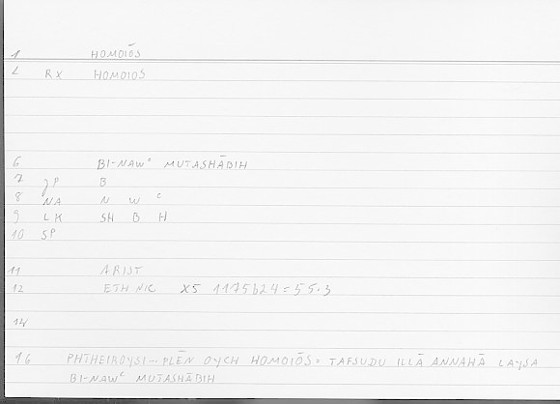 1 HOMOIŌS
2 RX HOMOIOS
6 BI-NAWʿ MUTASHĀBIH
7 JP B
8 NA N W ʿ
9 LK SH B H
10 SP
11 ARIST
12 ETH NIC X5 1175b24 = 55.3
14
16 PHTHEIROYSI – PLĒN OYCH HOMOIŌS = TAFSUDU ILLĀ ANNAHĀ LAYSA
BI-NAWʿ MUTASHĀBIH